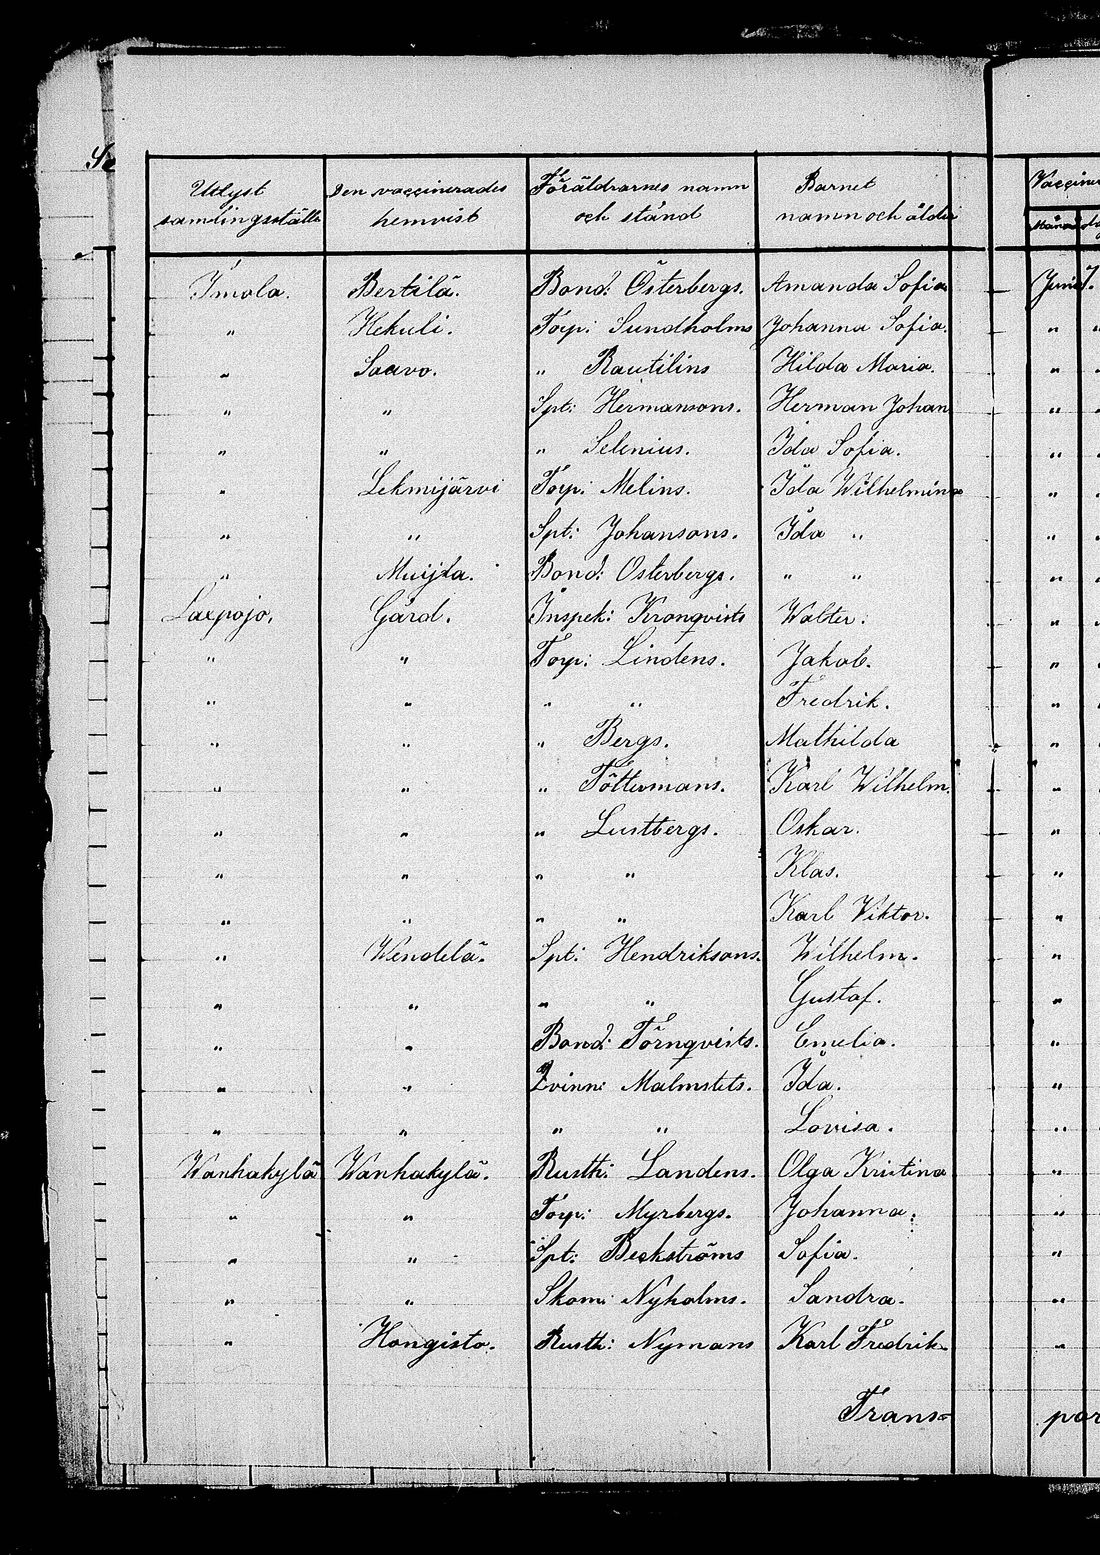 Utlyst samlingsställe | Den vaccinerades hemvist | Föräldrarnes namn och stånd | Barnet namn och ålder | Vacciner
Månad
Imola. | Bertilä. | Bond: Österbergs. | Amanda Sofia | Juni 7.
" | Hekuli. | Torp: Sundholms | Johanna Sofia. | " "
" | Saavo. | " Rautilins | Hilda Maria. | " "
" | " | Spt: Hermansons. | Herman Johan | " "
" | " | " Selenius. | Ida Sofia. | " "
" | Lekmijärvi | Torp: Melins. | Ida Wilhelmina | " "
" | " | Spt: Johansons. | Ida " | " "
" | Muijla. | Bond: Österbergs. | " " | " "
Laxpojo. | Gård. | Inspek: Kronqvists | Walter. | " "
" | " | Torp: Lindens. | Jakob. | " "
" | " | " " | Fredrik. | " "
" | " | " Bergs. | Mathilda | " "
" | " | " Töttermans. | Karl Wilhelm. | "
" | " | " Lustbergs. | Oskar. | "
" | " | " " | Klas. | "
" | " | " " | Karl Viktor. | "
" | Wendelä. | Spt: Hendriksons. | Wilhelm. | "
" | " | " " | Gustaf. | "
" | " | Bond: Törnqvists. | Emelia. | "
" | " | Qvinn: Malmstets. | Ida. | "
" | " | " " | Lovisa. | "
Wanhakylä | Wanhakylä. | Rusth: Landens. | Olga Kristina | "
" | " | Torp: Myrbergs. | Johanna. | "
" | " | Spt: Beckströms | Sofia. | "
" | " | Skom: Nyholms. | Sandra. | "
" | Hongisto. | Rusth: Nymans | Karl Fredrik. | "
Trans= | por